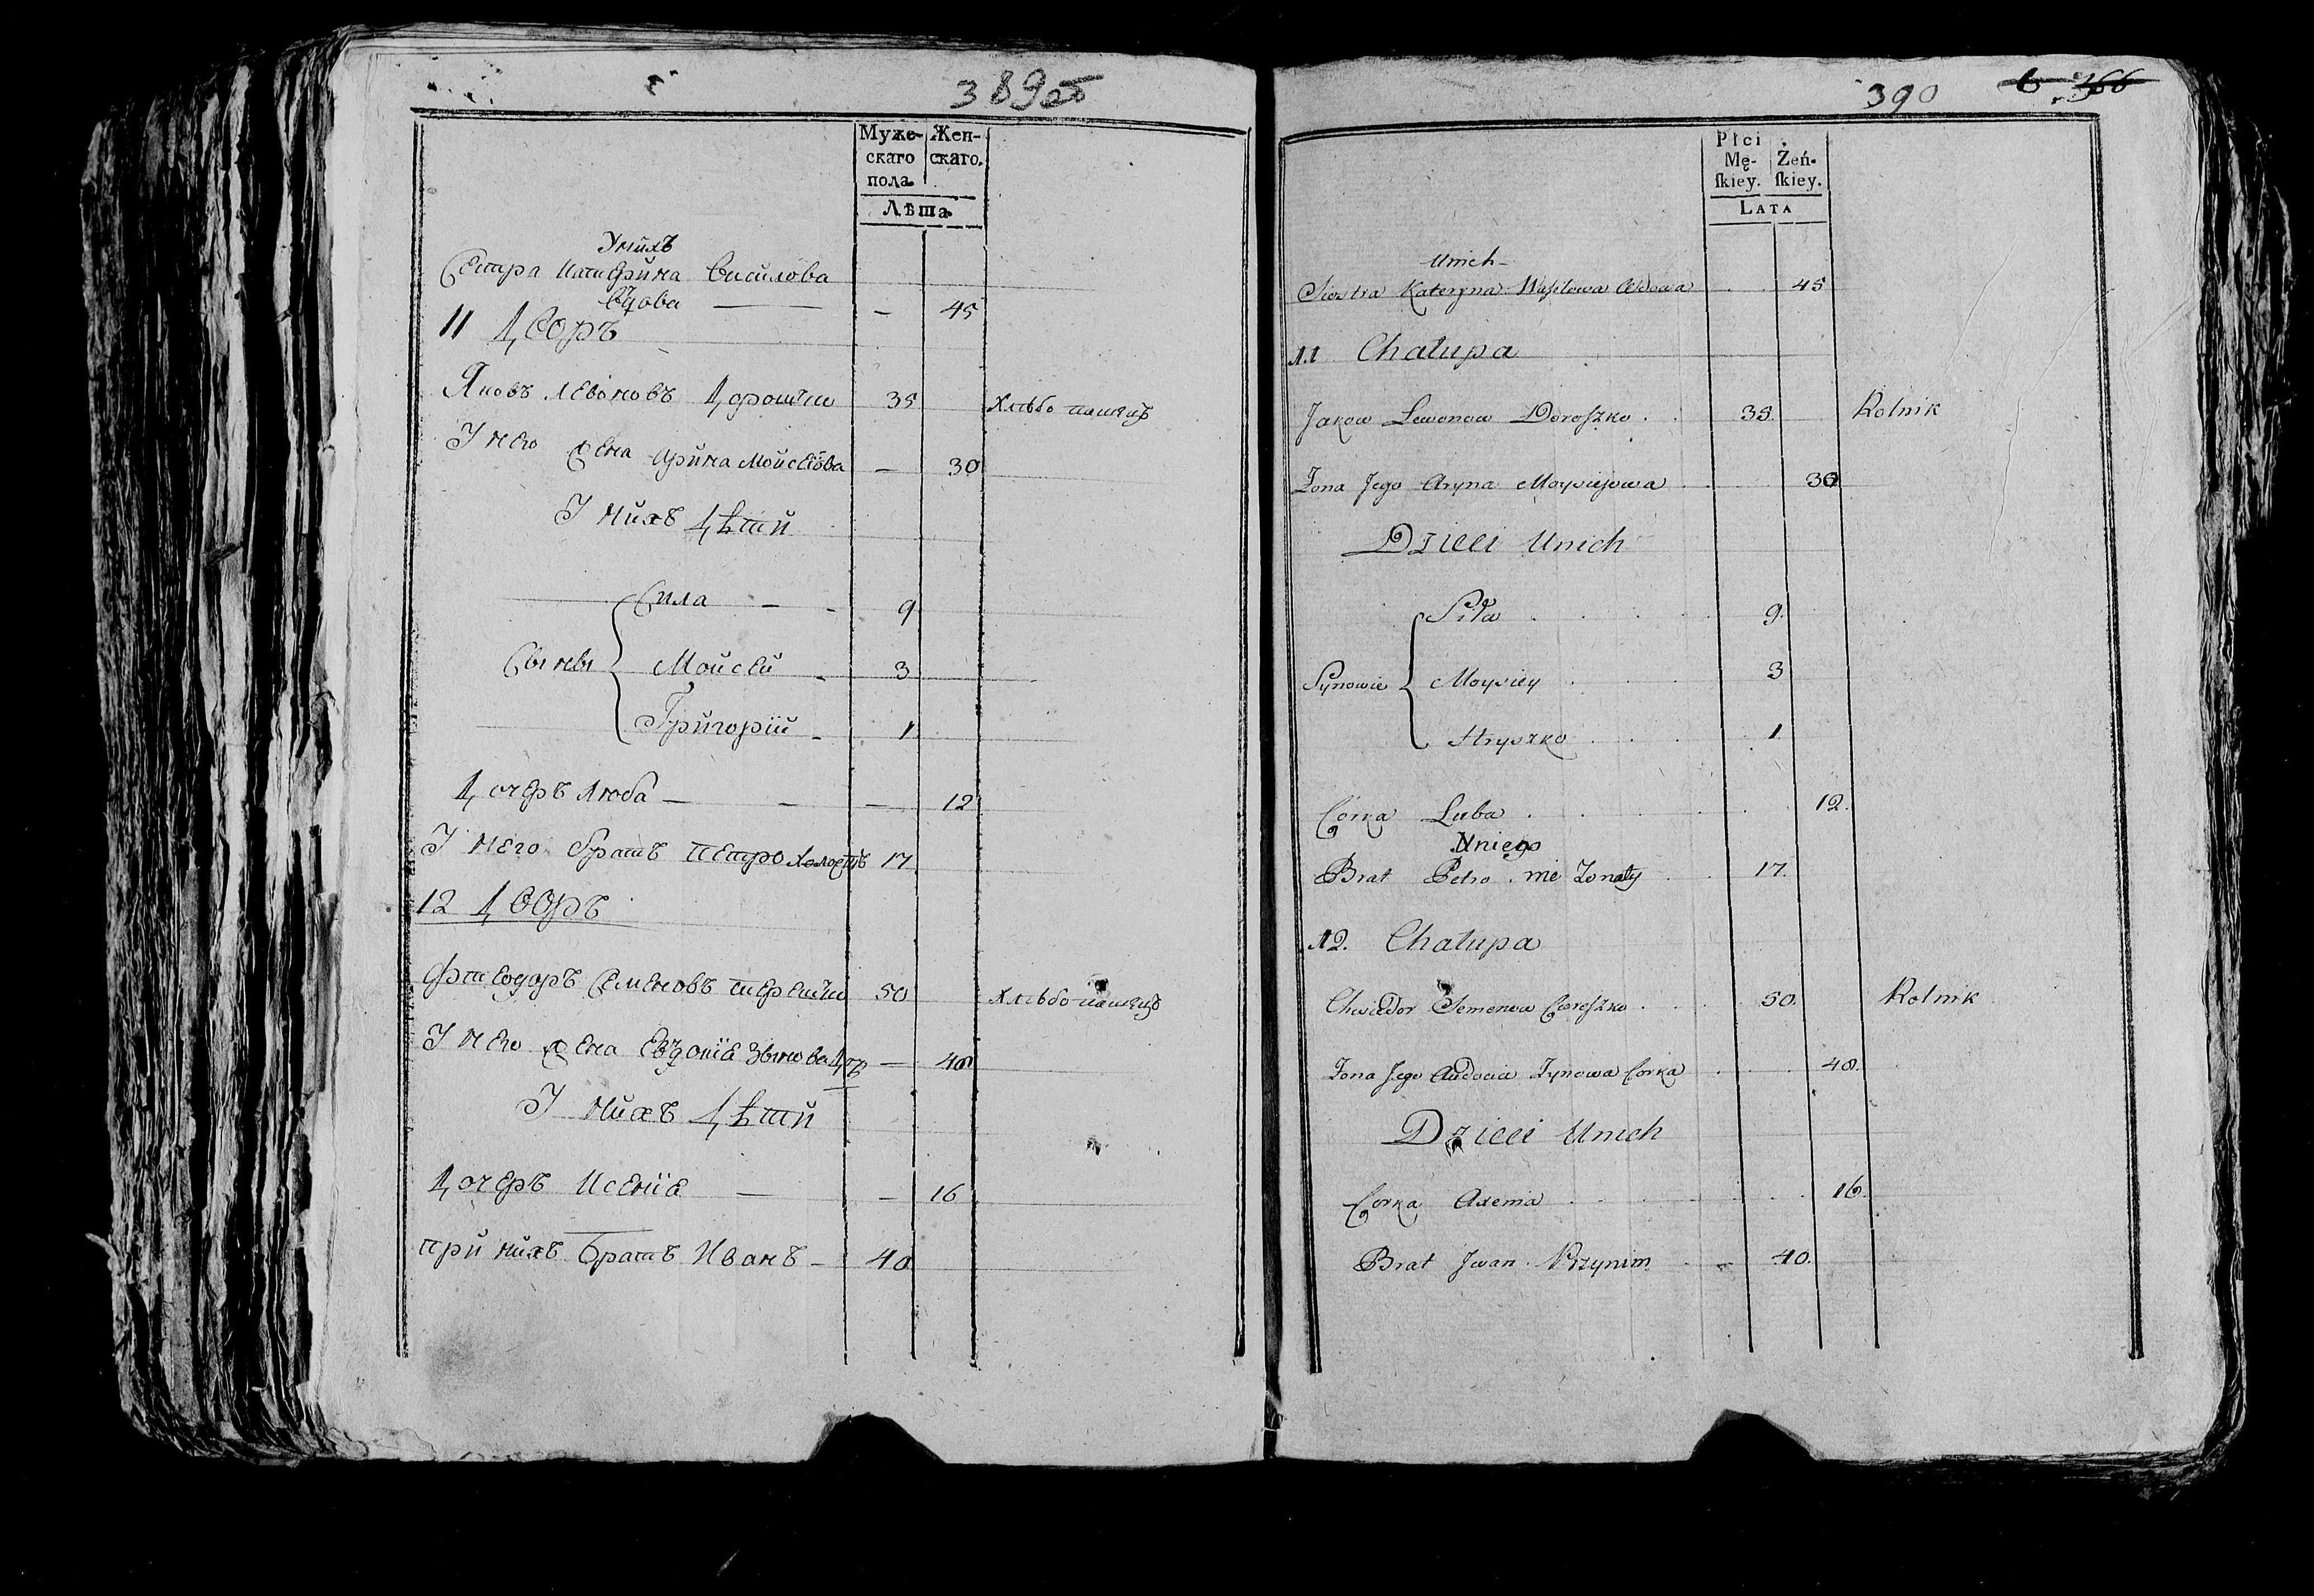 389об
Муже- Жен-
скаго скаго.
пола
Лѣта
Унихъ
Сестра Катерина Василова
Вдова — — 45
11 Дворъ
Яковъ Левоновъ Дорошко 35 Хлѣбопашецъ
У него жена Арина Мойсеіова — 30
У нихъ Дѣти
Сила — - 9
Сынвы Мойсей - 3
Григорій - 1
Дочеръ Люба — - — 12
У него братъ Петро Холостъ 17
12 Дворъ
Фтеодаръ Семеновъ Терешко 50 Хлѣбопашецъ
У него жена Евдокіа Зынова Дчъ — 48
У нихъ Дѣти
Дочеръ Ксеніа — — 16
При нихъ Братъ Иванъ - 40
390 366
Płci
Mę- Żeń-
ſkiey. ſkiey.
LATA
Unich
Siostra Kateryna Wasilowa Wdowa 45
11 Chałupa
Jakow Lewonow Doroszko 35. Rolnik
Zona Jego Aryna Moysiejowa 30
Dzieci Unich
Siła 9.
Synowie Moysiey 3
Hryszko 1
Corka Luba 12.
Uniego
Brat Petro nie Zonaty 17.
12. Chałupa
Chwiedor Semenow Cereszko 50. Rolnik
Zona Jego Audocia Zynowa Corka 48.
Dzieci Unich
Corka Axenia 16.
Brat Jwan Przynim 40.